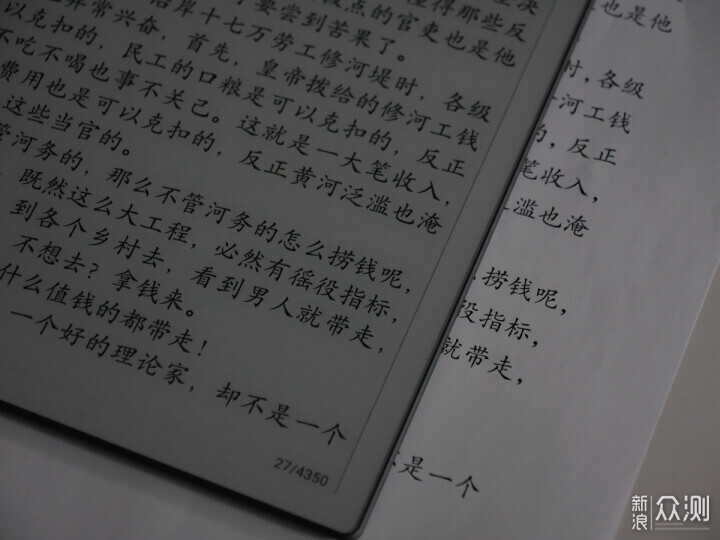 坚决
懂得那些反
放点的官吏也是他
也非常兴奋,
要尝到苦果了。
沿岸十七万劳工修河堤时,各级
,首先,皇帝拨给的修河工钱
以克扣的,民工的口粮是可以克扣的,反正
不吃不喝也事不关己。这就是一大笔收入,
费用也是可以克扣的,反正黄河泛滥也淹
这些当官的。
管河务的,那么不管河务的怎么捞钱呢,
,既然这么大工程,必然有徭役指标,
到各个乡村去,看到男人就带走,
不想去?拿钱来。
什么值钱的都带走!
一个好的理论家,却不是一个
27/4350
也是他
时,各级
河工钱
的,反正
笔收入,
滥也淹
捞钱呢,
役指标,
就带走,
是一个
新浪众测